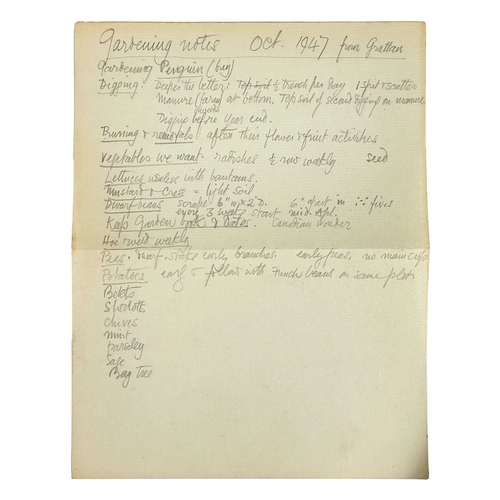 Gardening notes Oct. 1947 from Grattan
Gardening Penguin (buy)
Digging: Deeper the better: Top soil ½ trench per day 1 spit & scatter
Manure (farm) at bottom. Top soil of second digging on manure.
Digging before year end.
Burning & removals after their flower & fruit activities
Vegetables we want: radishes ½ row weekly seed
Lettuces useless with bantams.
Mustard & Cress = light soil
Dwarf beans scrape 6" w x 2" D. 6" apart in fives
every 3 weeks start mid. Apl. Canadian Wonder
Keep Garden book & dates.
Hoe & weed weekly
Peas. Dwarf, stake early branches. early peas, no main crop
Potatoes early & follow with French beans on same plot
Beets
Shallots
Chives
Mint
Parsley
Sage
Bay Tree